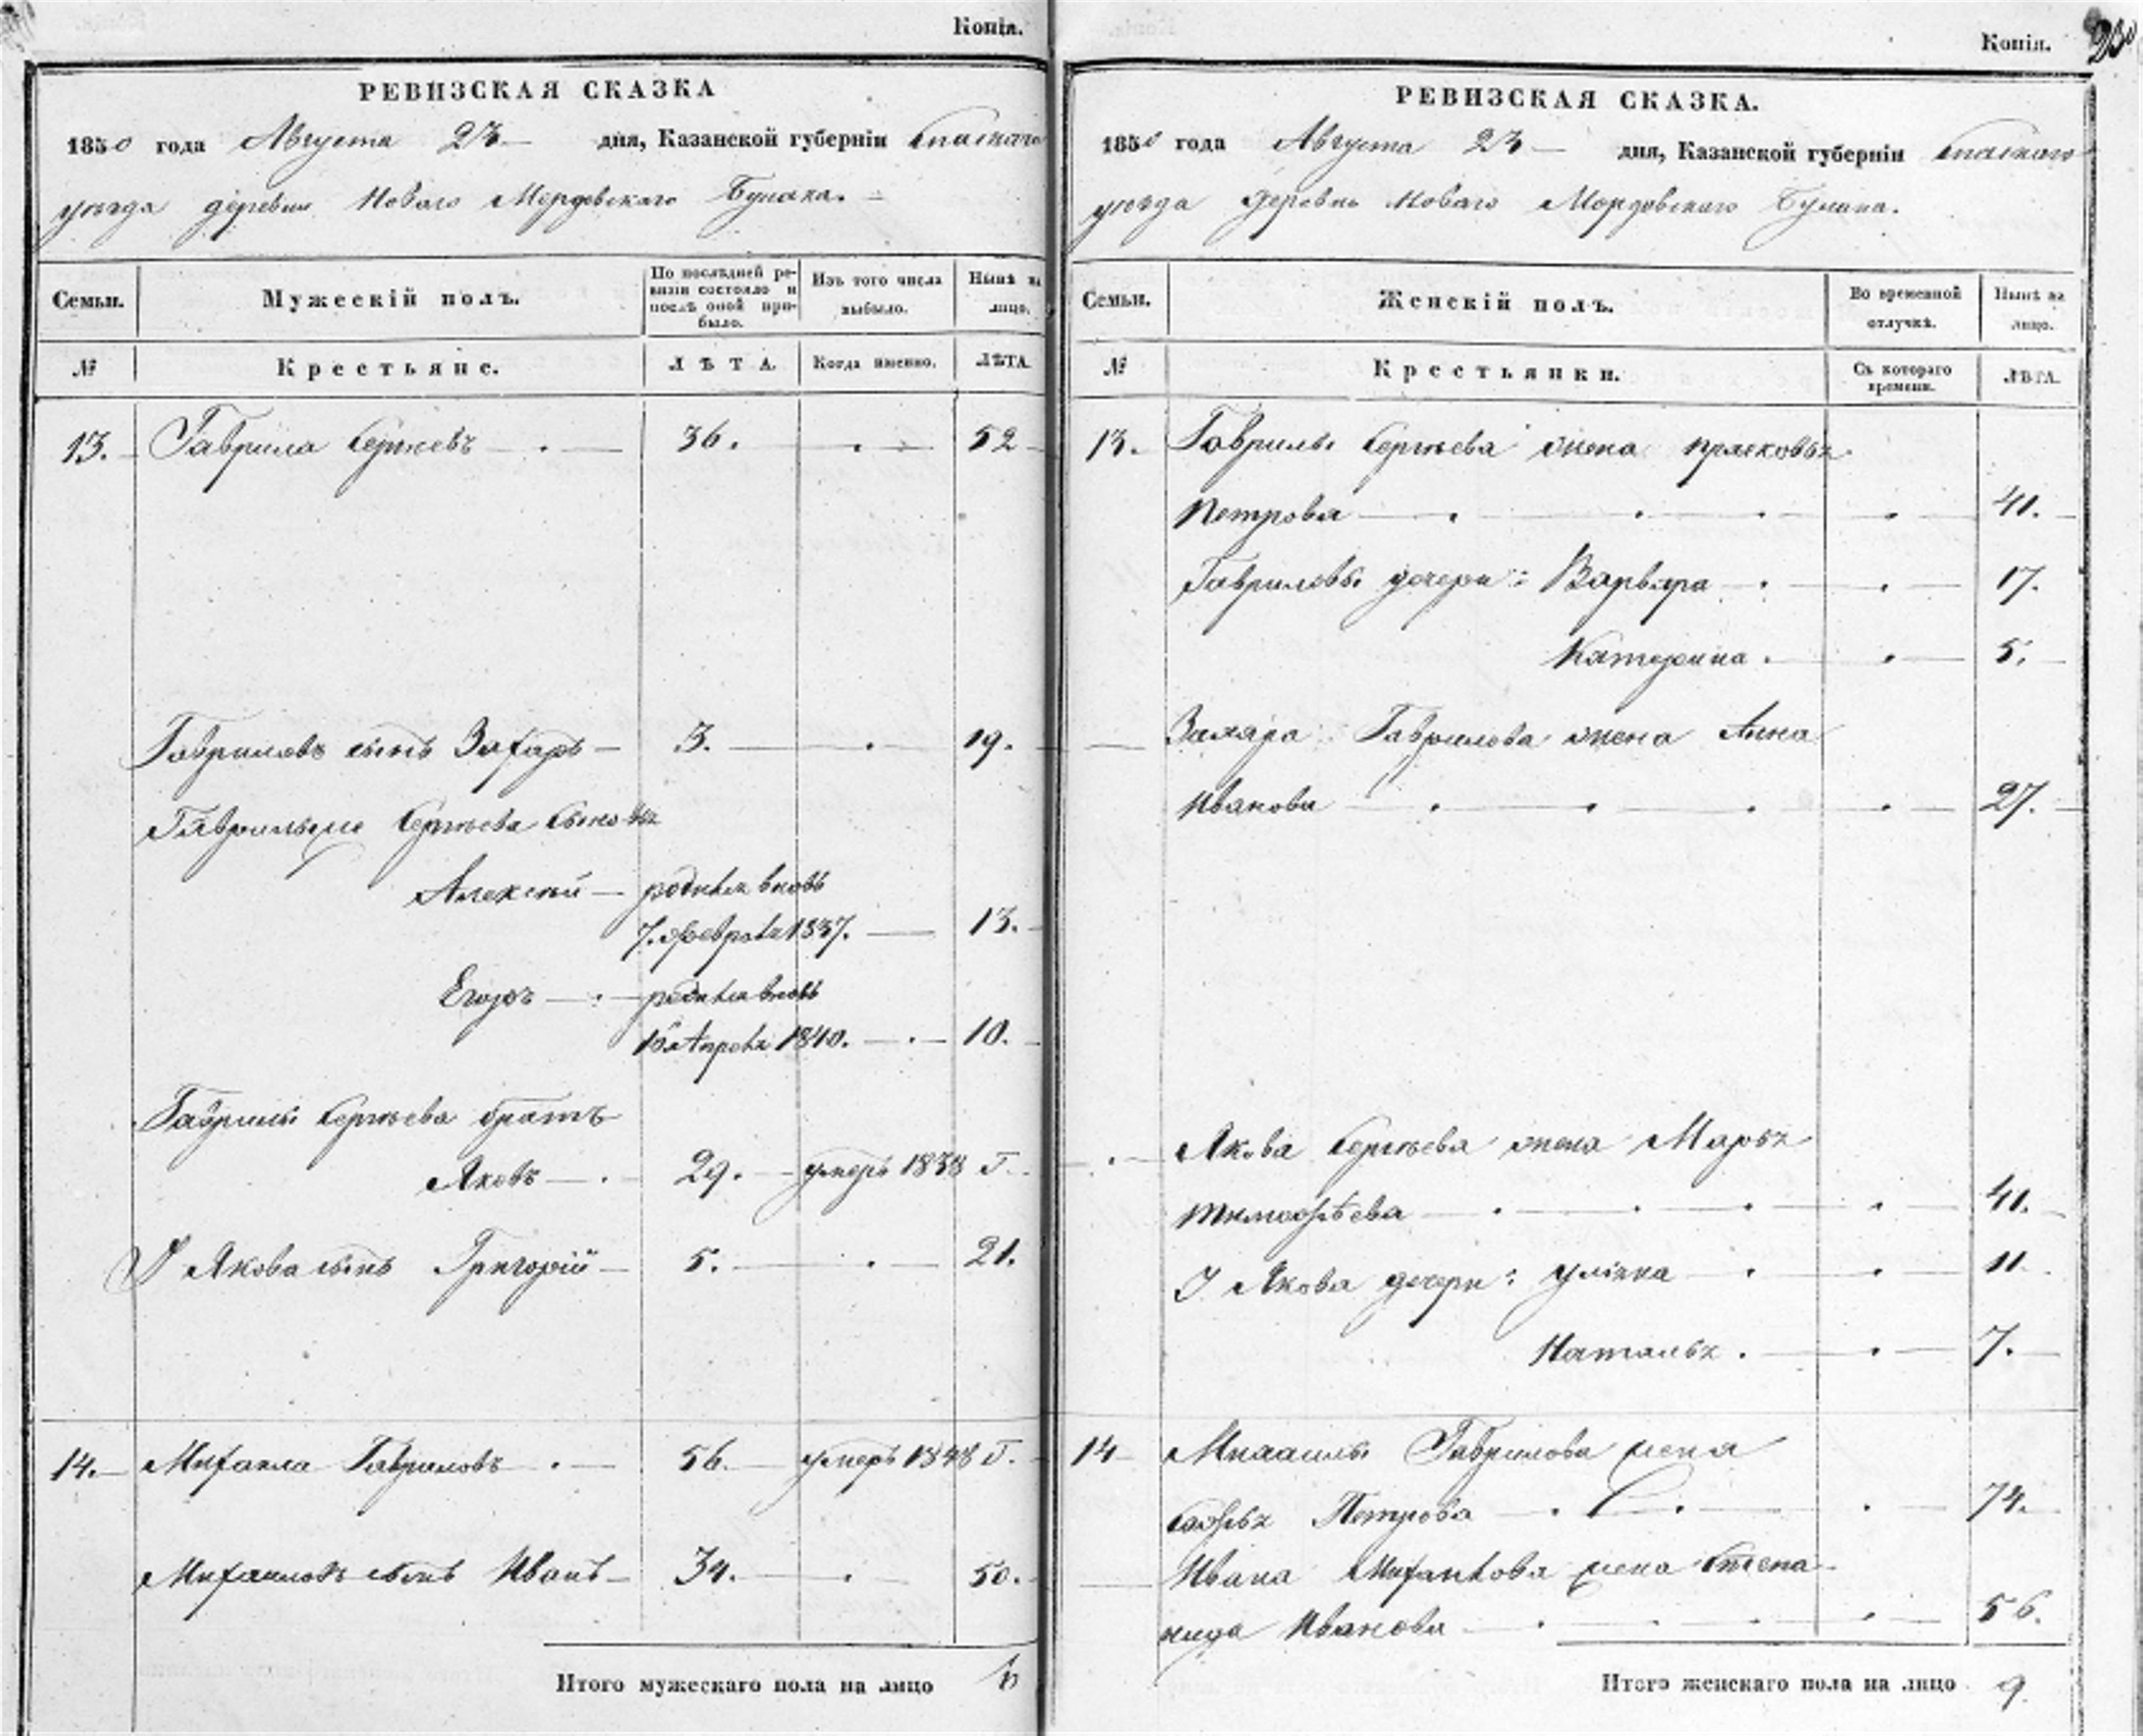 Копія.
РЕВИЗСКАЯ СКАЗКА
1850 года Августа 23 дня, Казанской губерніи Спаскаго
уѣзда деревни Новаго Мордовскаго Булака.
Семьи.
Мужескій полъ.
По послѣдней ре-
визіи состояло и
послѣ оной при-
было.
Изъ того числа
выбыло.
Нынѣ на
лицо.
№
Крестьяне.
ЛѢТА.
Когда именно.
ЛѢТА.
13. Гаврила Сергѣевъ 36. 52
Гавриловъ сынъ Захаръ 3. 19.
Сергѣева сыновья
Алексѣй родился вновь
7. февраля 1837. 13.
Егоръ родился вновь
Апреля 1840. 10.
Гаврилы Сергѣева братъ
Яковъ 29. умеръ 1838 г.
У Якова сынъ Григорій 5. 21.
14. Михаила Гавриловъ 56. умеръ 1848 г.
Михаиловъ сынъ Иванъ 34. 50.
Итого мужескаго пола на лицо 6
Копія.
РЕВИЗСКАЯ СКАЗКА.
1850 года Августа 23 дня, Казанской губерніи Спаскаго
уѣзда деревни Новаго Мордовскаго Булака.
Семьи.
Женскій полъ.
Во временной
отлучкѣ.
Нынѣ на
лицо.
№
Крестьянки.
Съ котораго
времени.
ЛѢТА.
13. Гаврилы Сергѣева жена Прасковья
Петрова 41.
Гавриловы дочери: Варвара 17.
Катерина 5.
Захара Гаврилова жена Анна
Иванова 27.
Якова Сергѣева жена Марья
Тимофѣева 41.
У Якова дочери: Ульяна 11
Наталья 7.
14 Михаилы Гаврилова жена
Софья Петрова 74.
Ивана Михайлова жена Степа-
нида Иванова 56.
Итого женскаго пола на лицо 9